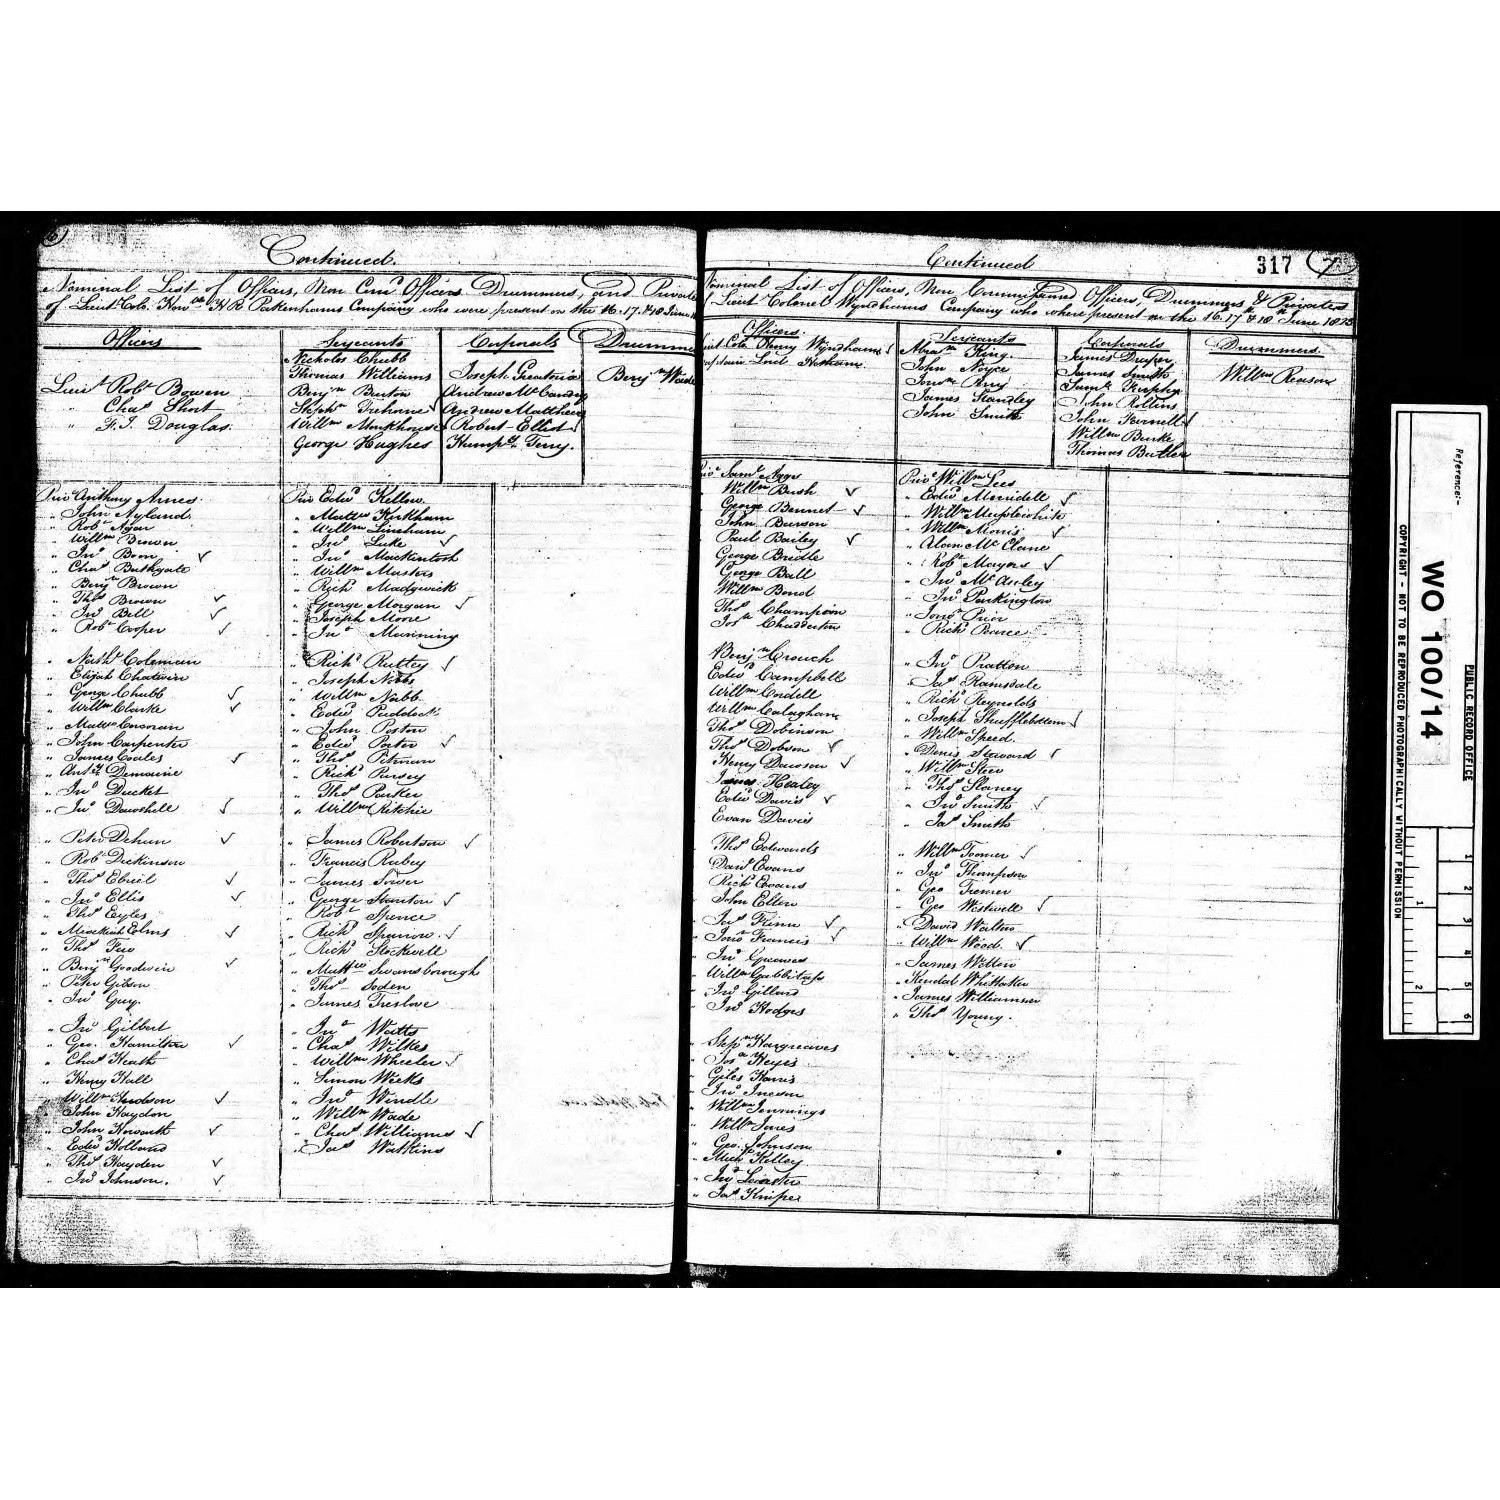 Continued.
Nominal List of Officers, Non Com'd Officers Drummers, and Privates
of Lieut Col. Hon'ble H R Pakenhams Company who were present on the 16. 17. & 18 June
Officers
Lieut Rob't Bowen
" Cha's Short
" F. J. Douglas.
Serjeants
Nicholas Chubb
Thomas Williams
Benj'n Burton
Steph'n Trehorne ✓
Will'm Monkhouse
George Hughes
Corporals
Joseph
Andrew McCandry
Andrew Matthew
Robert Elliot ✓
Hump'y Terry.
Drummers
Benj'n Wade
Priv Anthony Ames.
" John Ayland
" Rob't Agar
" Will'm Brown
" Jn'o Boon ✓
" Cha's Bathgate
" Benj'n Brown
" Tho's Brown ✓
" Jn'o Bell ✓
" Rob't Cooper ✓
" Nath'l Coleman
" Elijah Chatwin
" George Chubb ✓
" Will'm Clarke ✓
" Matt'w Corcoran
" John Carpenter
" James Coales ✓
" Ant'y Demaine
" Jn'o Ducket
" Jn'o Dowthell ✓
" Peter Dehun ✓
" Rob't Dickinson
" Tho's Ebriel ✓
" Jn'o Ellis ✓
" Tho's Eyles
" Elms ✓
" Tho's Few
" Benj'n Goodwin ✓
" Peter Gibson
" Jn'o Guy.
" Jn'o Gilbert
" Geo. Hamilton ✓
" Cha's Heath
" Henry Hall
" Will'm Hudson ✓
" John Haydon
" John Howarth ✓
" Edw'd Holland
" Tho's Hayden ✓
" Jn'o Johnson. ✓
Priv Edw'd Kellow
" Matt'w Kirkham
" Will'm Lineham
" Jn'o Luke ✓
" Jn'o Mackintosh
" Will'm Masters
" Rich'd Madgwick
" George Morgan ✓
" Joseph Moore
" Jn'o Munning
" Rich'd Ruttey ✓
" Joseph Nibbs
" Will'm Nabb.
" Edw'd Puddock
" John Poston
" Edw'd Porter ✓
" Tho's Pitman
" Rich'd Pursey
" Tho's Parker
" Will'm Ritchie
" James Robertson ✓
" Francis Rubey
" James Tower
" George Stanton ✓
" Rob't Spence
" Rich'd Sparrow ✓
" Rich'd Stockwell
" Matt'w Swansborough
" Tho's Soden
" James Treslove
" Jn'o Watts
" Cha's Wilkes
" Will'm Wheeler ✓
" Simon Weeks
" Jn'o Windle
" Will'm Wade
" Cha's Williams ✓
" Ja's Watkins
Continued
317
7
Nominal List of Officers, Non Commissioned Officers, Drummers & Privates
Lieut Colonel Wyndhams Company who where present on the 16th 17th & 18th June 1815
Officers.
Col. Henry Wyndham ✓
Captain Lord Hotham.
Serjeants
Abra'm King
John Noyce
Jon'n Any
James Standley
John Smith
Corporals
James Draper
James Smith
Sam'l Trophy
John Rollins
John Farnell ✓
Will'm Burke
Thomas Butler
Drummers
Will'm Reason
Priv Sam'l Aggs
Will'm Bush ✓
George Bennet ✓
John Burson
Paul Bailey ✓
George Bridle
George Ball
Will'm Bond
Tho's Champion
Jos'h Chadderton
Benj'n Crouch
Edw'd Campbell
Will'm Cordell
Will'm Calaghan
Tho's Dobinson
Tho's Dobson ✓
Henry Dawson ✓
James Healey
Edw'd Davis ✓
Evan Davis
Tho's Edwards
Dav'd Evans
Rich'd Evans
John Elton
Ja's Flinn ✓
Jon'n Francis ✓
Jn'o Greaves
Will'm Gubbitass
Jn'o Gillard
Jn'o Hodges
" Step'n Hargreaves
" Jos'h Keyes
" Giles Harris
" Jn'o Ineson
" Will'm Jennings
" Will'm Jones
" Geo. Johnson
" Mich'l Kelley
" Jn'o Leaster
" Ja's Kniper
Priv Will'm Lees
" Edw'd Merridell ✓
" Will'm Musslewhite
" Will'm Morris ✓
" Alan Mc Clane
" Rob't Mayors ✓
" Jn'o Mc Auley
" Jn'o Parkington
" Jon'n Prior
" Rich'd Pearce
" Jn'o Pratton
" Ja's Ramsdale
" Rich'd Reynolds
" Joseph Shufflebottom ✓
" Will'm Speed.
" Denis Stoward ✓
" Will'm Steer
" Tho's Slaney
" Jn'o Smith ✓
" Ja's Smith
" Will'm Toomer ✓
" Jn'o Thompson
" Geo Tremer
" Geo Westwell ✓
" David Walters
" Will'm Wood. ✓
" James Wilton
" Kendal Whittaker
" James Williamson
" Tho's Young.
Reference:-
WO 100/14
PUBLIC RECORD OFFICE
COPYRIGHT - NOT TO BE REPRODUCED PHOTOGRAPHICALLY WITHOUT PERMISSION
1
2
3
4
5
6
1
2